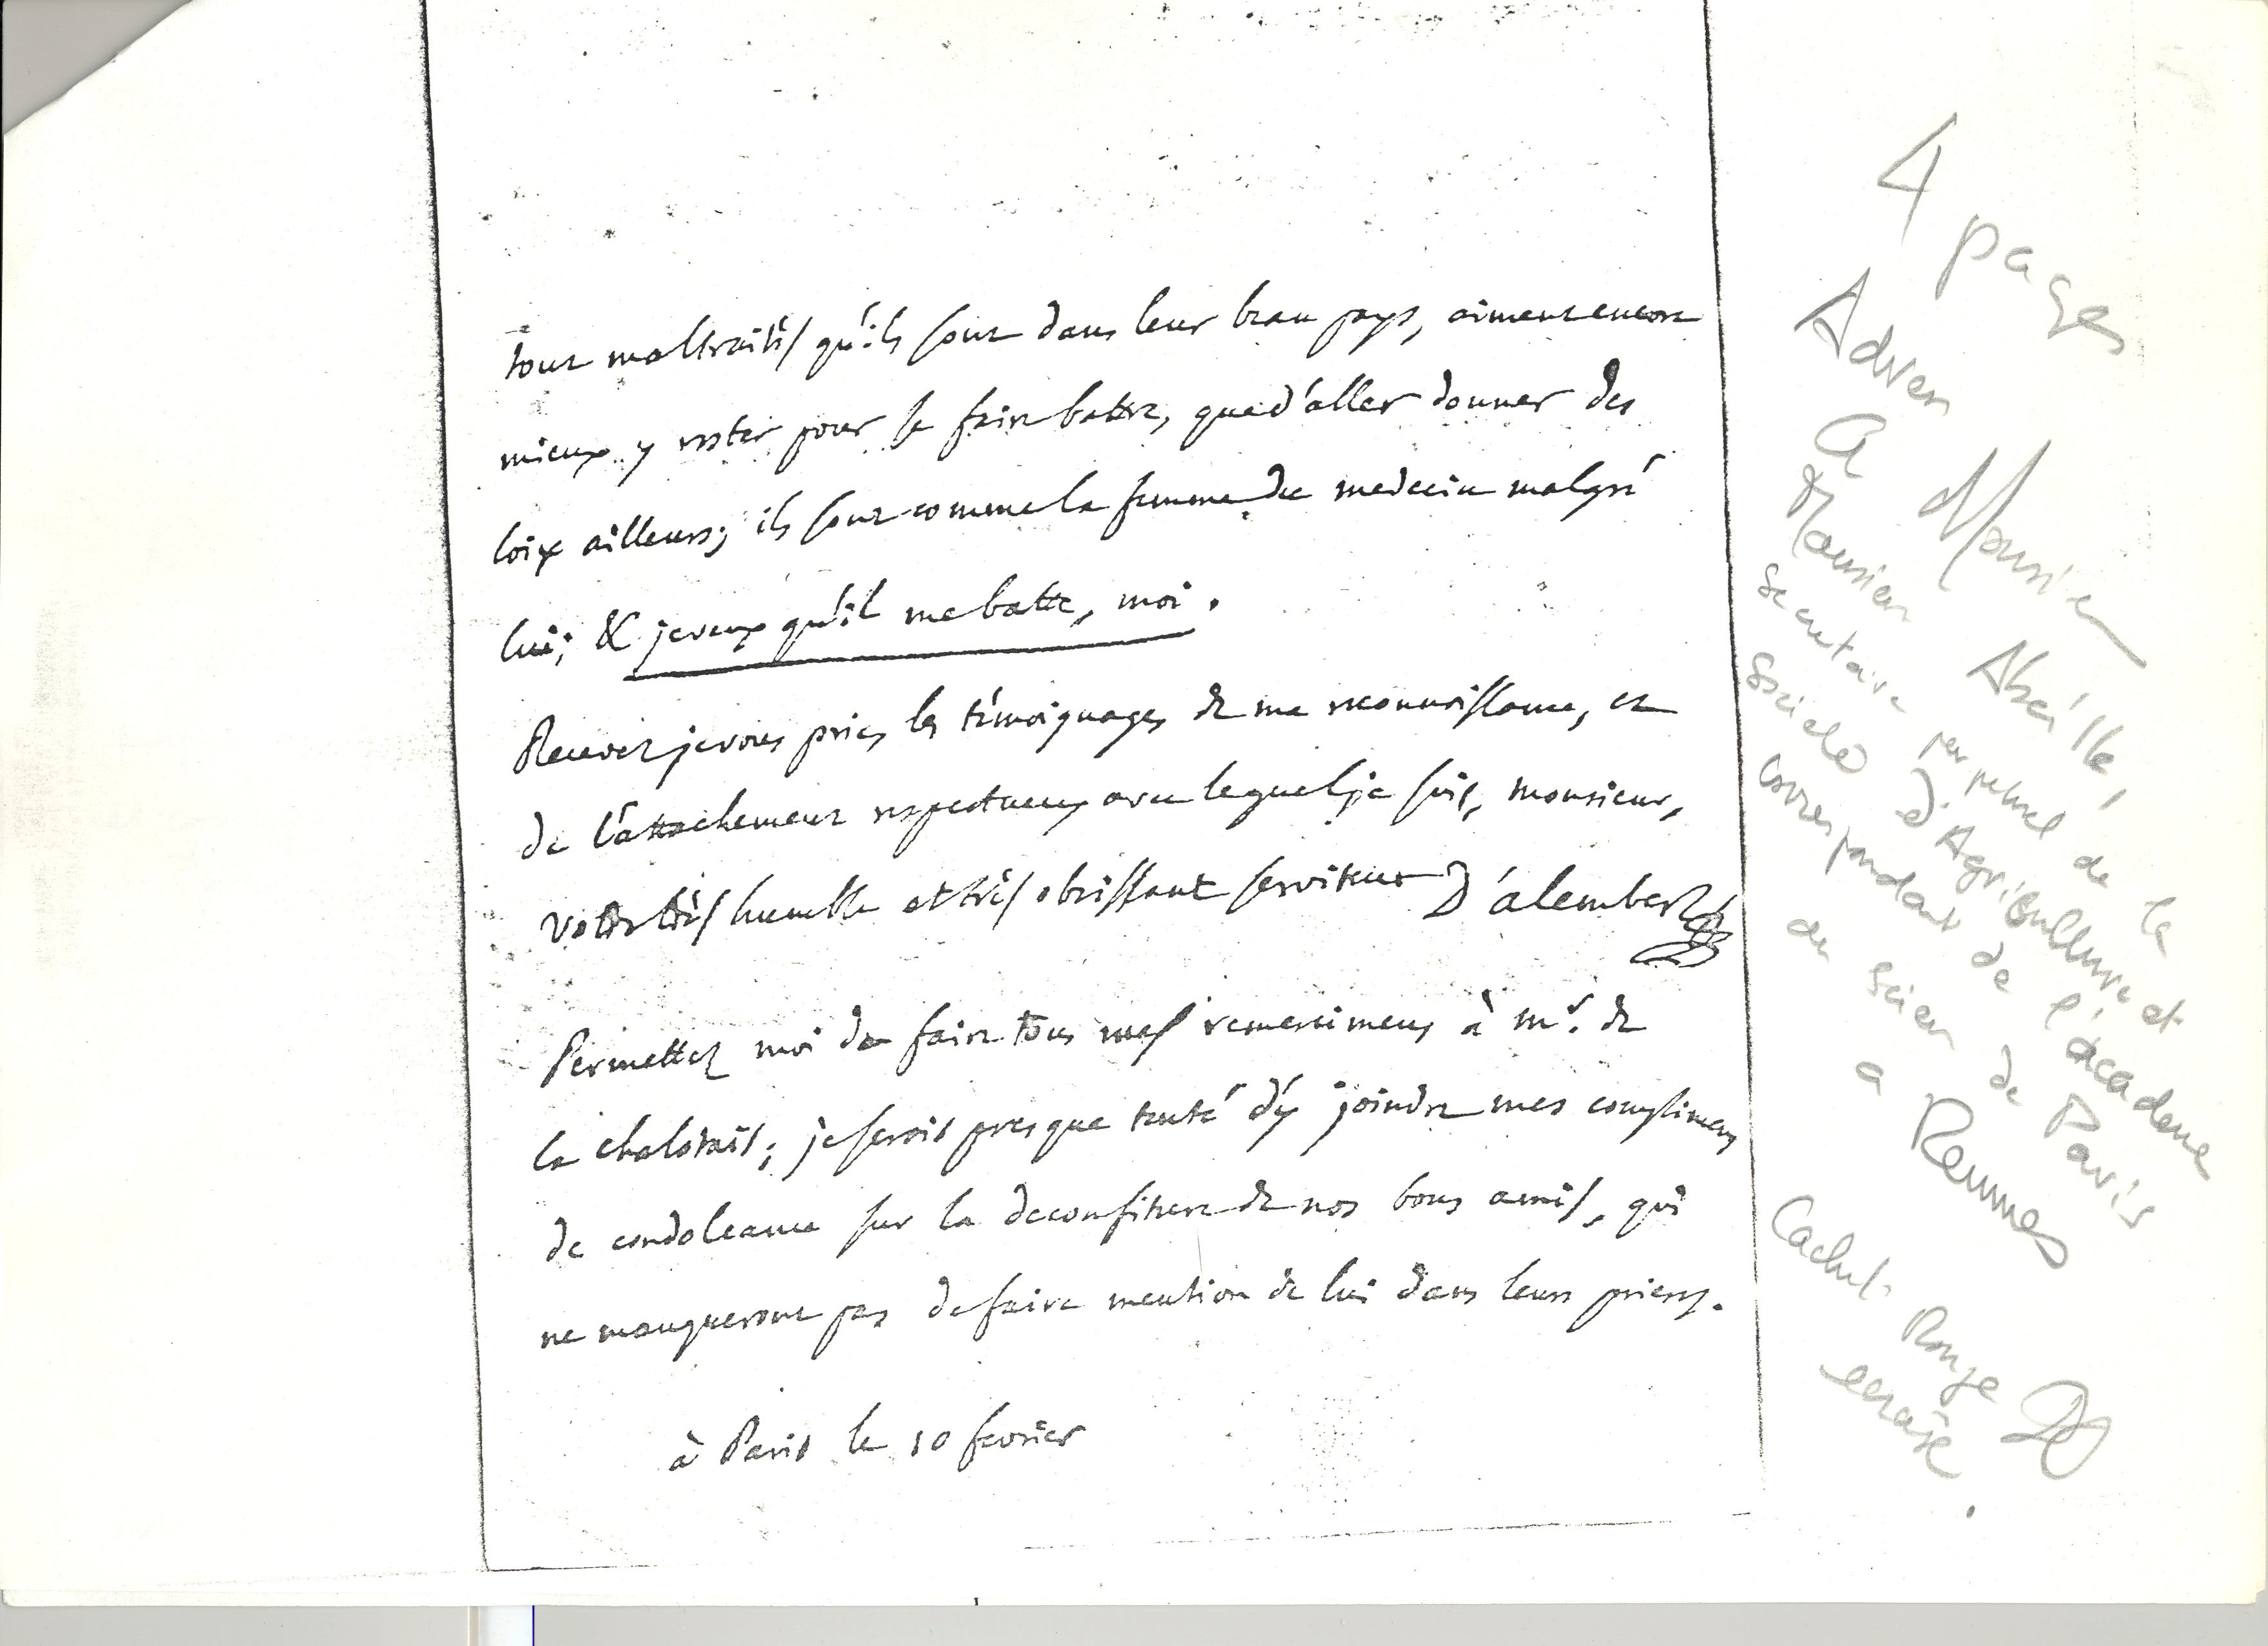 tout maltraités qu'ils sont dans leur beau pays, aiment encore
mieux y rester pour se faire battre, que d'aller donner des
loix ailleurs; ils sont comme la femme du medecin malgré
lui; & je veux qu'il me batte, moi.
Recevez je vous prie, les témoignages de ma reconnoissance, et
de l'attachement respectueux avec lequel je suis, monsieur,
votre très humble et très obeissant serviteur D'alembert
Permettez moi de faire tous mes remercimens à mr. de
la chalotais; je serois presque tenté d'y joindre mes complimens
de condoleance sur la deconfiture de nos bons amis, qui
ne manqueront pas de faire mention de lui dans leurs prieres.
à Paris le 10 fevrier
4 pages
Adresse
A Monsieur
Monsieur Abeille,
Secretaire perpetuel de la
Societé d'Agriculture et
Correspondant de l'académie
des Sciences de Paris
a Rennes
Cachet Rouge
ecrasé.